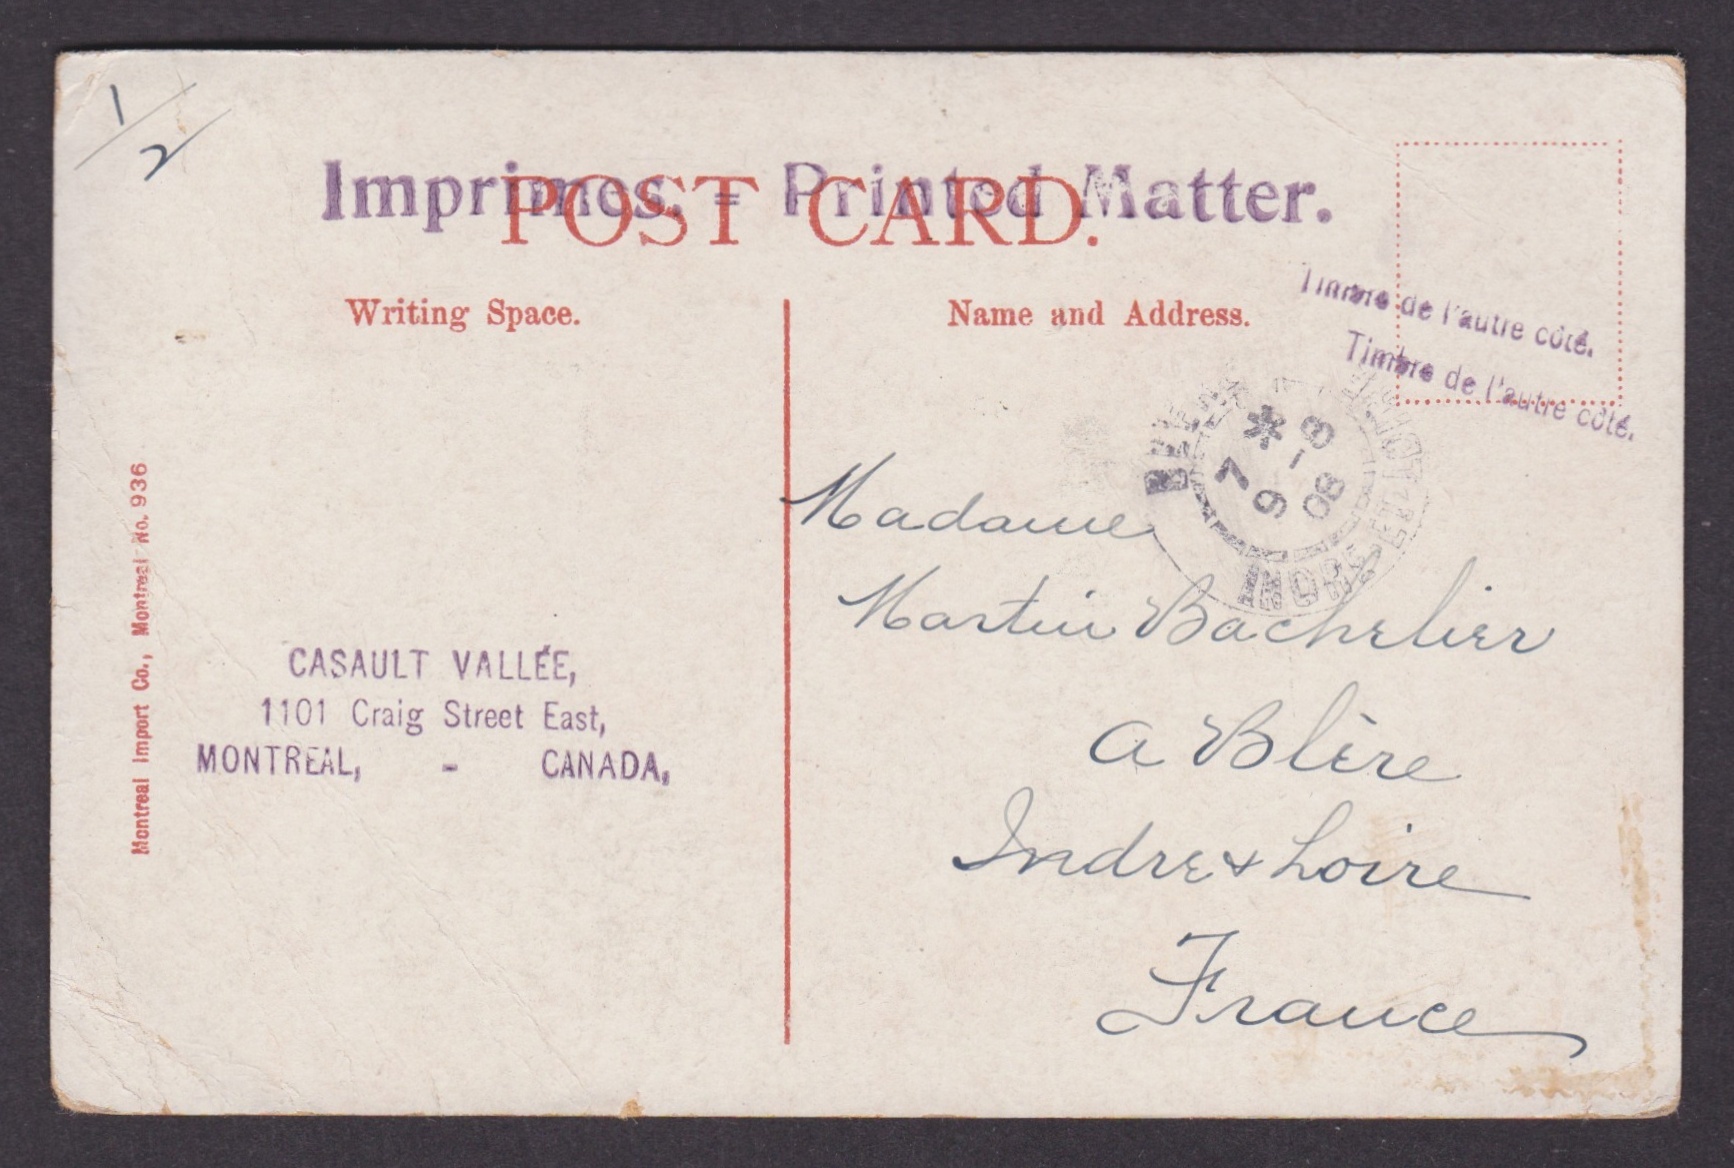 1/2
Imprimes. = Printed Matter.
POST CARD.
Writing Space.
Name and Address.
Timbre de l'autre côté.
Timbre de l'autre côté.
7 * 8 - 9 08
INDRE-ET-LOIRE
Madame
Martin Bachelier
a Blère
Indre & Loire
France
CASAULT VALLÉE,
1101 Craig Street East,
MONTREAL, - CANADA,
Montreal Import Co., Montreal No. 936